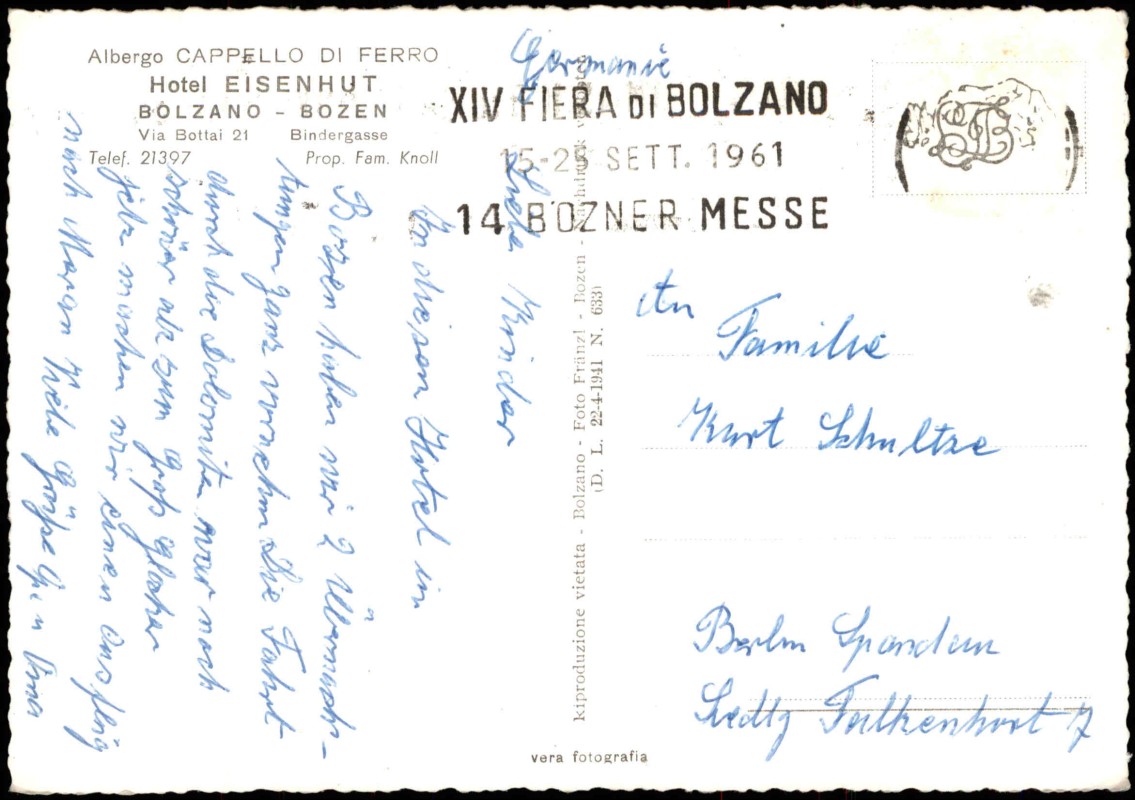 Albergo CAPPELLO DI FERRO
Hotel EISENHUT
BOLZANO - BOZEN
Via Bottai 21 Bindergasse
Telef. 21397 Prop. Fam. Knoll
Germanie
XIV FIERA DI BOLZANO
15-25 SETT. 1961
14 BOZNER MESSE
Liebe Kinder
In diesem Hotel in
Bozen haben wir 2 Übernach-
tungen ganz vornehm Die Fahrt
durch die Dolomiten war noch
schöner als zum Groß glockner
jetz machen wir einen Ausflug
nach Meran Viele Grüße
An
Familie
Kurt Schultze
Berlin Spandau
Siedlg Falkenhorst 7
Riproduzione vietata - Bolzano - Foto Fränzl - Bozen - Nachdruck verboten
(D. L. 22-4-1941 N. 633)
vera fotografia